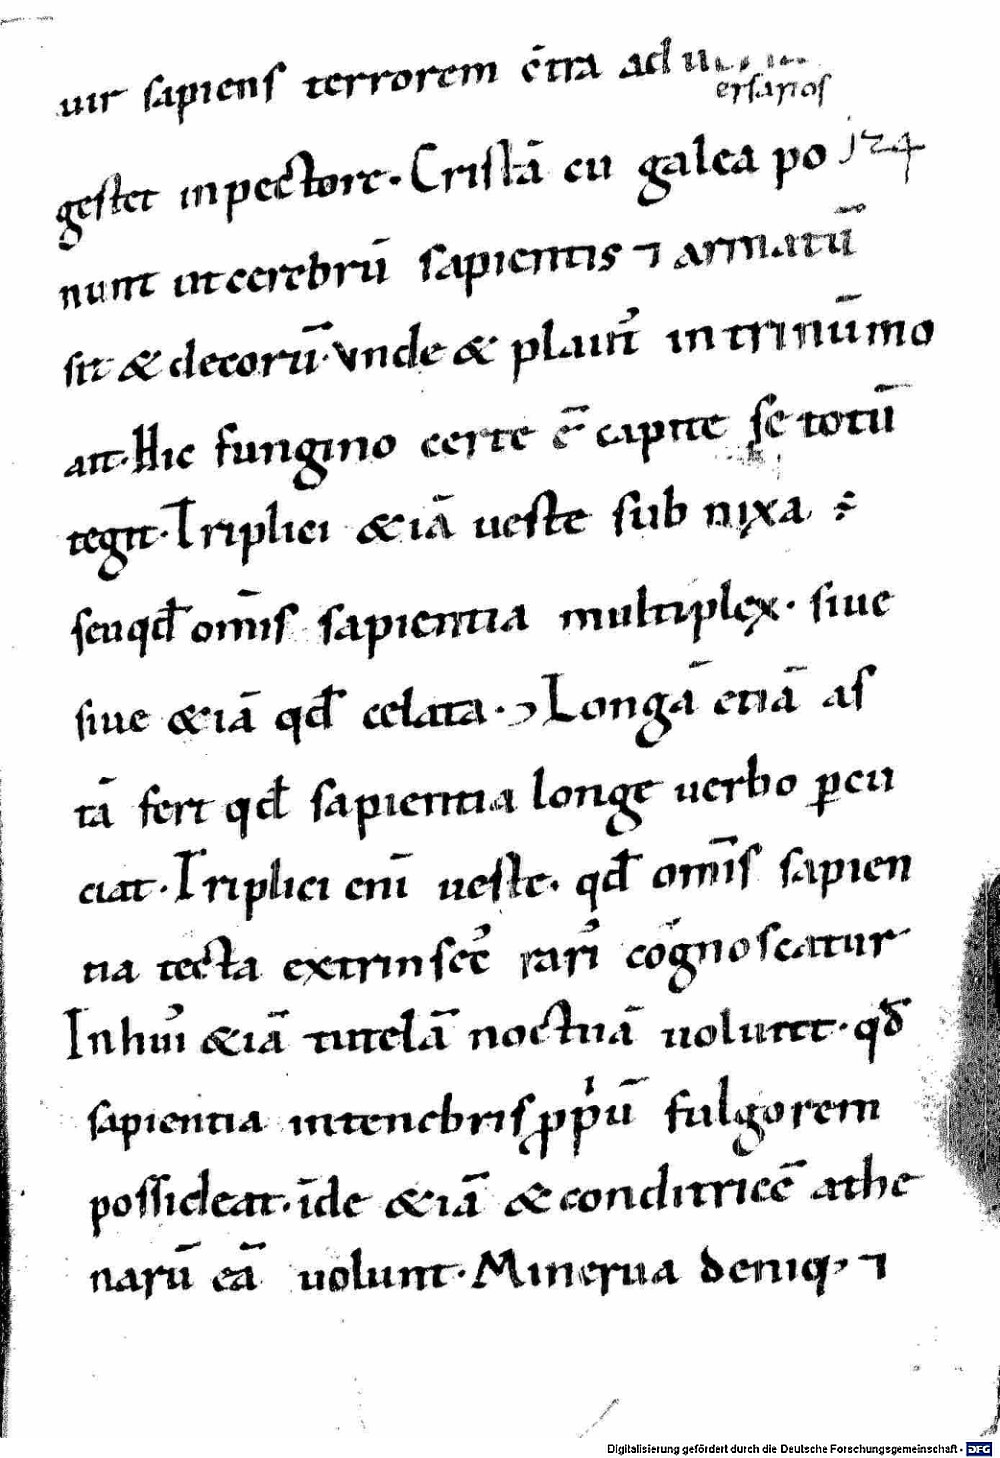 uir sapienſ terrorem c̄tra adu
erſarioſ
geſtet inpectore. Criſtā cu galea po
124
nunt intcerebrū sapientis ⁊ armatū
ſit & decorū. vnde & plaut᾽ intrinūmo
ait. Hic fungino certe ē capite ſe totū
tegit. Triplici &iā ueſte ſub nixa ÷
ſeuqđ om̄iſ sapientia multiplex. ſiue
ſiue &iā qđ celata. Longā etiā aſ
tā fert qđ ſapientia longe uerbo ꝑcu
ciat. Triplici eni̅ ueſte. qđ om̄iſ sapien
tia tecta extrinſec᾽ rari᾽ cógnoſcatur
Inhui᾽ &iā tutelā noctuā uolunt. qđ
sapientia intenebriſ ꝓp̍ū fulgorem
poſſideat. īde &iā & conditricē athe
narū eā uolunt. Minerua deniq, ⁊
Digitalisierung gefördert durch die Deutsche Forschungsgemeinschaft - DFG